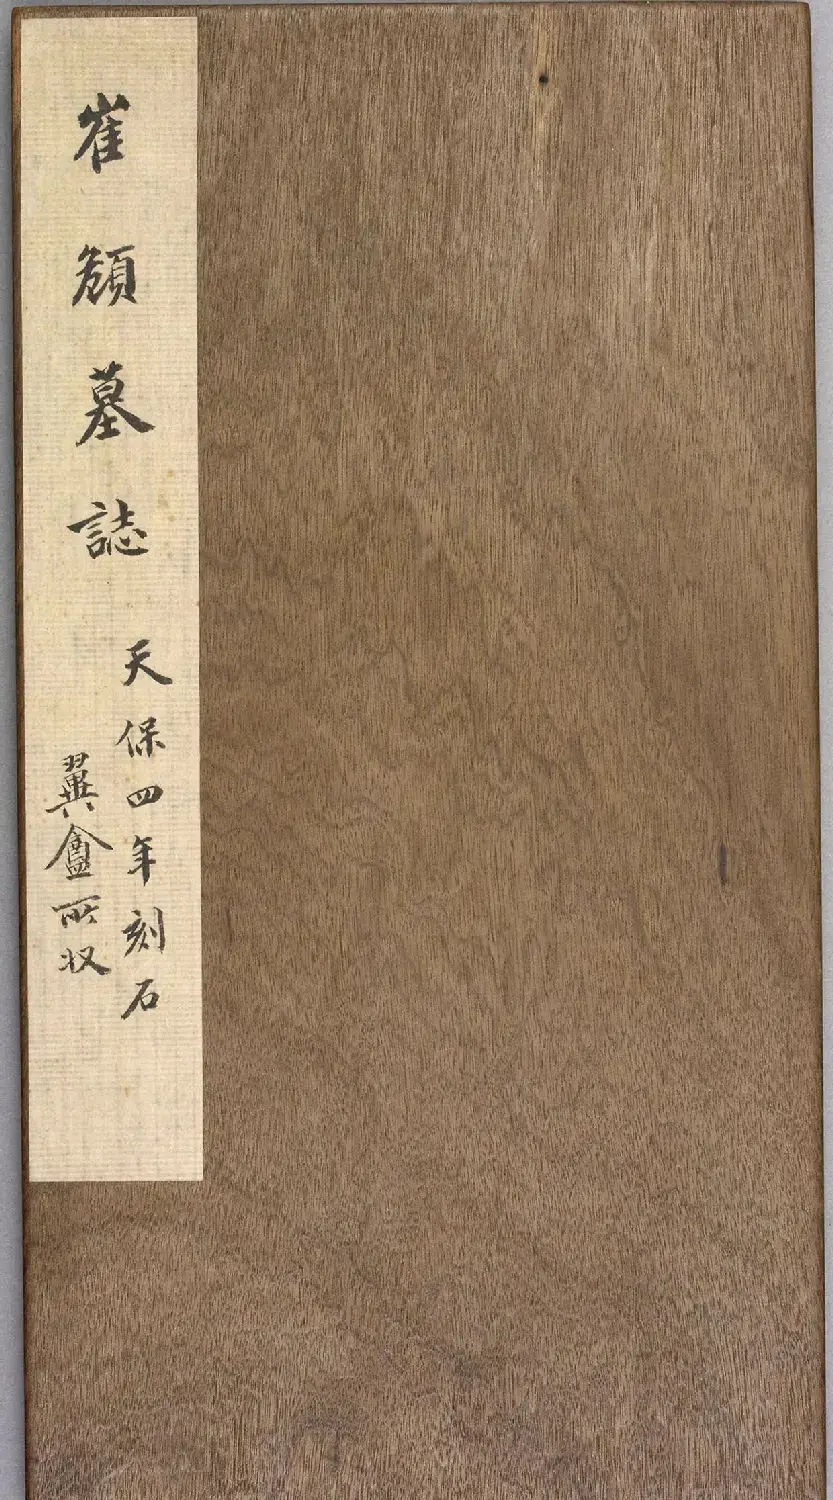 崔頠墓誌
天保四年刻石
翼盦所收